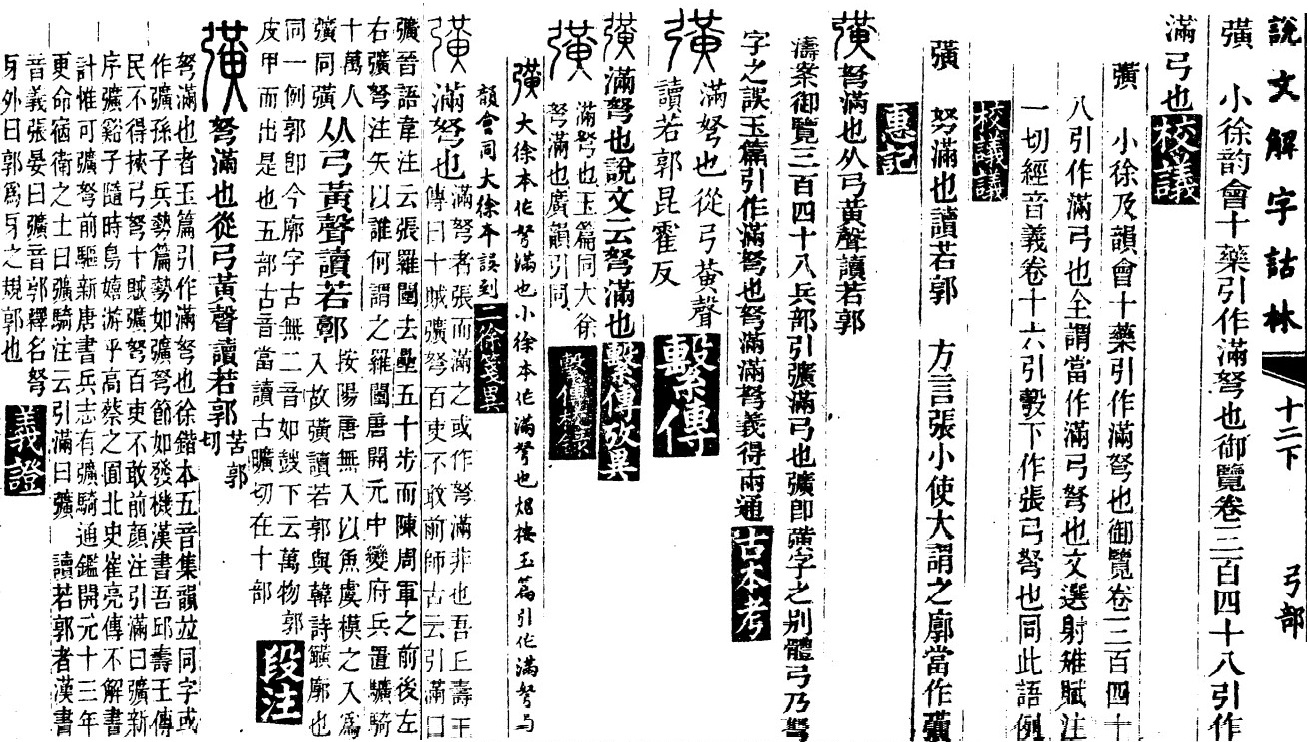 說文解字詁林 十二下 弓部
彉 小徐韵會十藥引作滿弩也御覽卷三百四十八引作
滿弓也 校議
彉 小徐及韻會十藥引作滿弩也御覽卷三百四十
八引作滿弓也仝謂當作滿弓弩也文選射雉賦注
一切經音義卷十六引彀下作張弓弩也同此語例
校議議
彉 弩滿也讀若郭 方言張小使大謂之廓當作彉
惠記
彉 弩滿也从弓黃聲讀若郭
濤案御覽三百四十八兵部引彍滿弓也彍卽彉字之別體弓乃弩
字之誤玉篇引作滿弩也弩滿滿弩義得兩通 古本考
彉 滿弩也從弓黃聲
讀若郭昆霍反 繫傳
彉 滿弩也說文云弩滿也 繫傳攷異
彉 滿弩也玉篇同大徐
弩滿也廣韻引同 繫傳校錄
彉 大徐本作弩滿也小徐本作滿弩也烟按玉篇引作滿弩与
韻會同大徐本誤到 二徐箋異
彉 滿弩也 滿弩者張而滿之或作弩滿非也吾丘壽王
傳曰十賊彍弩百吏不敢前師古云引滿曰
彍晉語韋注云張羅闉去壘五十步而陳周軍之前後左
右彍弩注矢以誰何謂之羅闉唐開元中變府兵置彍騎
十萬人彍同彉 从弓黃聲讀若郭 按陽唐無入以魚虞模之入爲
入故彉讀若郭與韓詩觵廓也
同一例郭卽今廓字古無二音如鼓下云萬物郭
皮甲而出是也五部古音當讀古曠切在十部 段注
彉 弩滿也從弓黃聲讀若郭 苦郭
切
弩滿也者玉篇引作滿弩也徐鍇本五音集韻竝同字或
作彍孫子兵勢篇勢如彍弩節如發機漢書吾邱壽王傳
民不得挾弓弩十賊彍弩百吏不敢前顏注引滿曰彍新
序彍谿子隨時鳥嬉游乎高蔡之囿北史崔亮傳不解書
計惟可彍弩前驅新唐書兵志有彍騎通鑑開元十三年
更命宿衛之士曰彍騎注云引滿曰彍 讀若郭者漢書
音義張晏曰彍音郭釋名弩
牙外曰郭爲牙之規郭也 義證